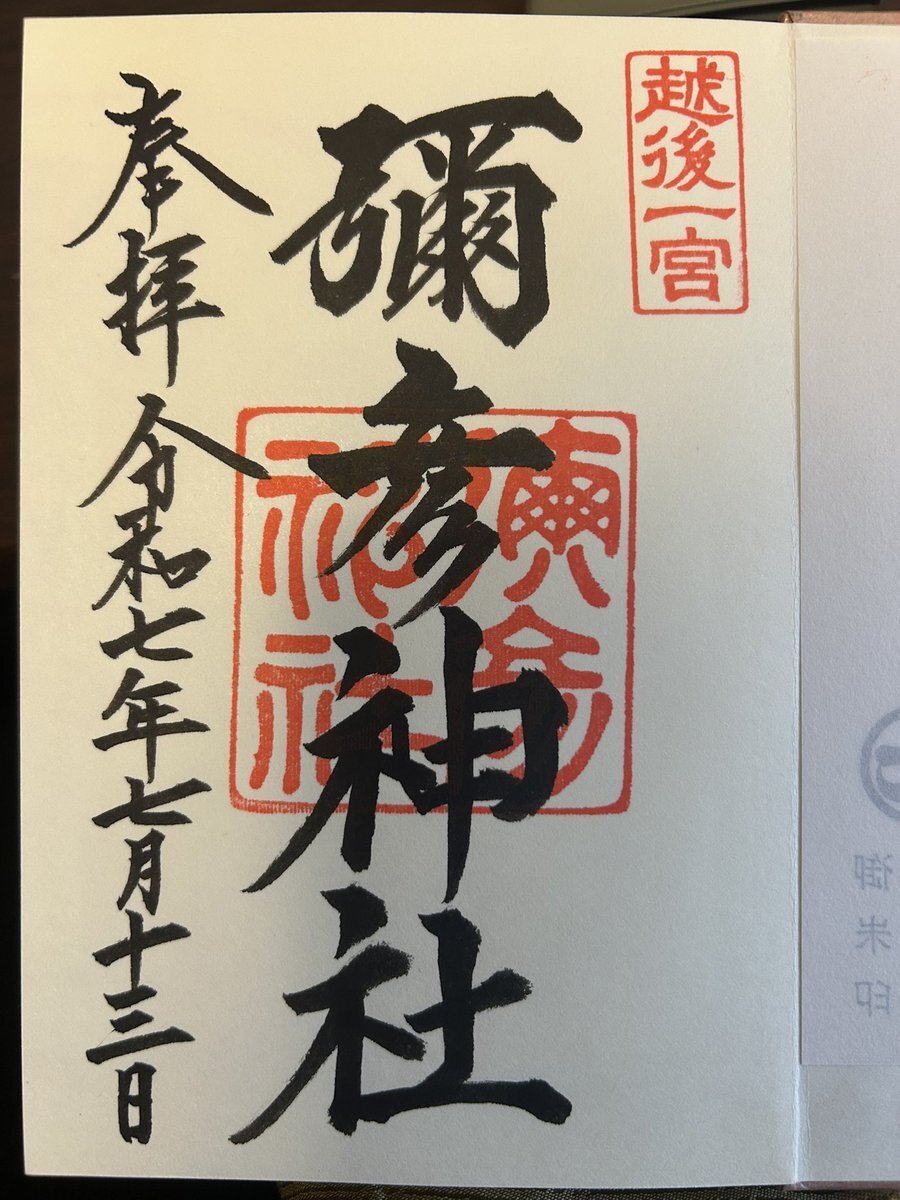 越後一宮
彌彦神社
彌彦神社
奉拝
令和七年七月十三日
御朱印